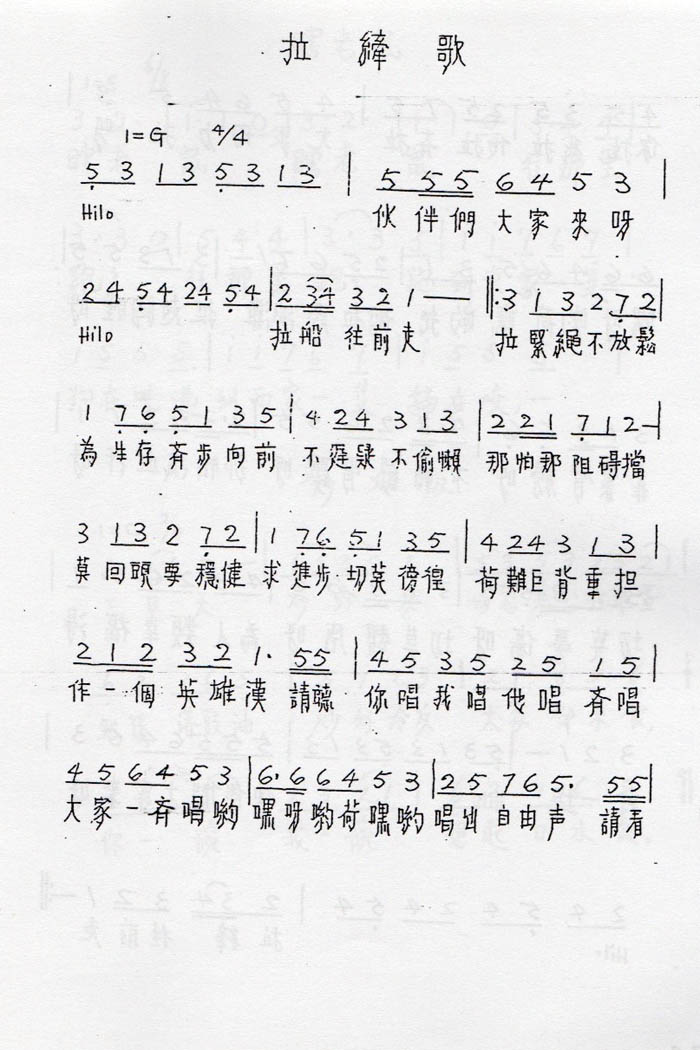 拉縴歌
1=G 4/4
5 3 1 3 5 3 1 3 | 5 5 5 6 4 5 3 |
Hilo 伙伴們大家來呀
2 4 5 4 2 4 5 4 | 2 3 4 3 2 1 — — ‖: 3 1 3 2 7 2 |
Hilo 拉船往前走 拉緊繩不放鬆
1 7 6 5 1 3 5 | 4 2 4 3 1 3 | 2 2 2 1 7 1 2 — |
為生存齐步向前 不遲疑不偷懶 那怕那阻碍擋
3 1 3 2 7 2 | 1 7 6 5 1 3 5 | 4 2 4 3 1 3 |
莫回頭要穩健 求進步切莫徬徨 荷難巨背重担
2 1 2 3 2 1 · 5 5 | 4 5 3 5 2 5 1 5 |
作一個英雄漢 請聽 你唱我唱他唱齐唱
4 5 6 4 5 3 | 6 · 6 6 4 5 3 | 2 5 7 6 5 · 5 5 |
大家一齐唱喲 嘿呀喲荷嘿喲 唱出自由声 請看